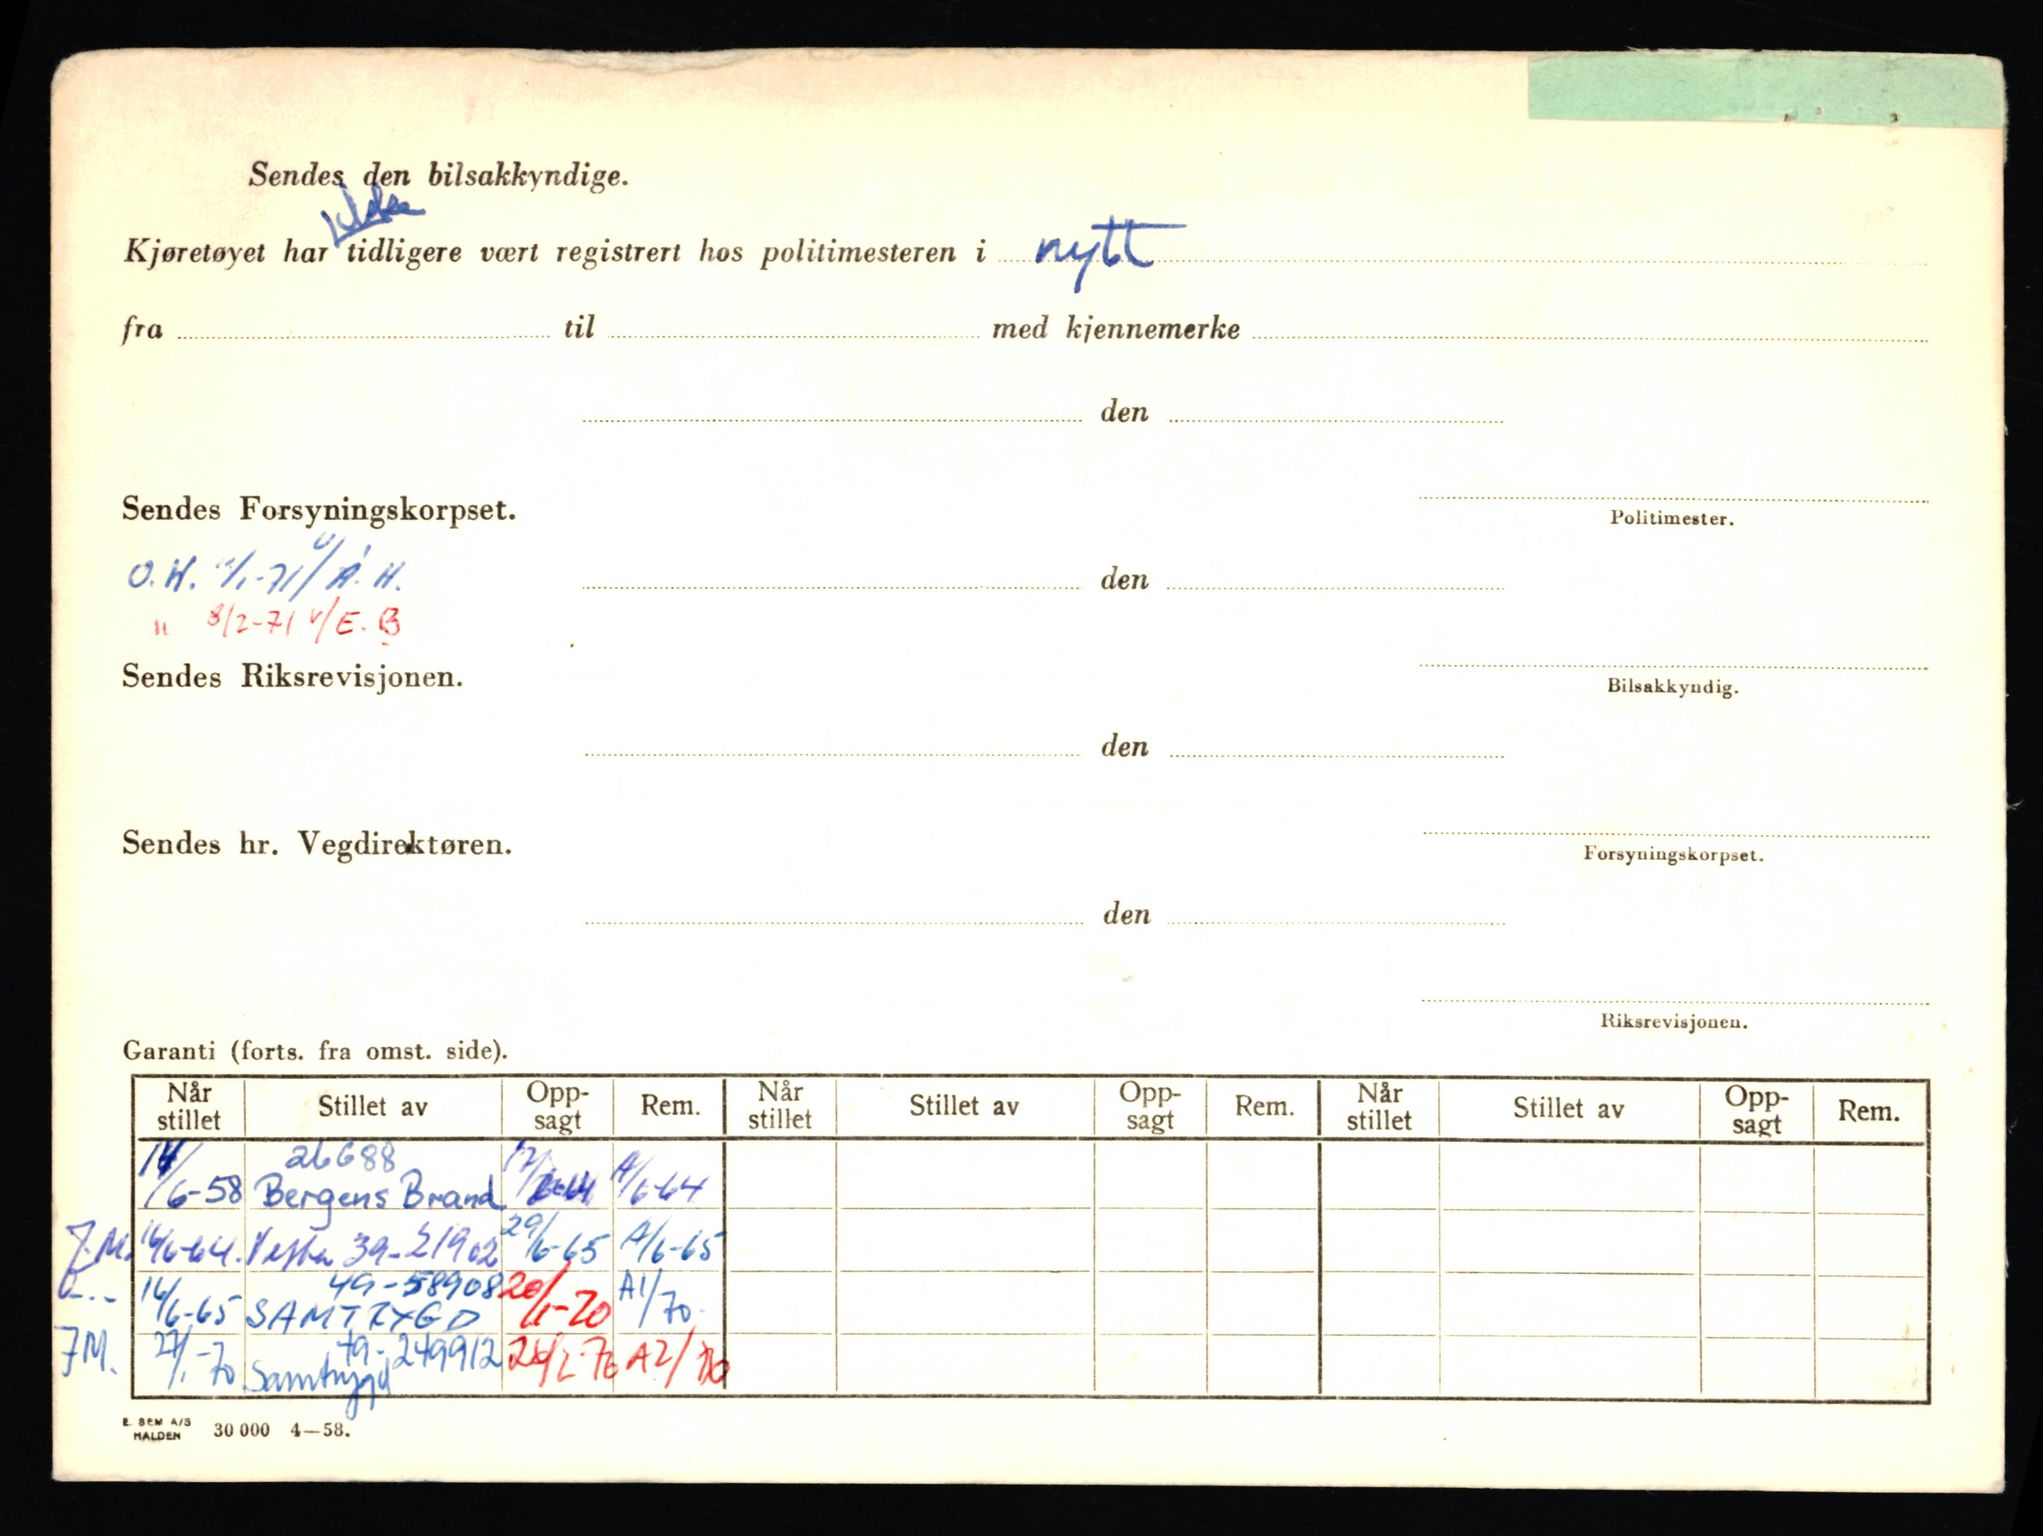 Sendes den bilsakkyndige.
Kjøretøyet har tidligere vært registrert hos politimesteren i nytt
fra til med kjennemerke
den
Politimester.
Sendes Forsyningskorpset.
O.H. /1-71 v/ Å.H.
den
" 8/2-71 v/E.B
Bilsakkyndig.
Sendes Riksrevisjonen.
den
Forsyningskorpset.
Sendes hr. Vegdirektøren.
den
Riksrevisjonen.
Garanti (forts. fra omst. side).
Når stillet Stillet av Opp-sagt Rem. Når stillet Stillet av Opp-sagt Rem. Når stillet Stillet av Opp-sagt Rem.
26688
14/6-58 Bergens Brand 17/6-64 A/6-64
J.M. 16/6-64. Vesta 39-21902 29/6-65 A/6-65
49-58908
16/6-65 SAMTRYGD 20/1-70 A1/70-
79-249912
JM. 27/1-70 Samtrygd 26/2-70 A2/70
E. SEM A/S
HALDEN 30 000 4—58.